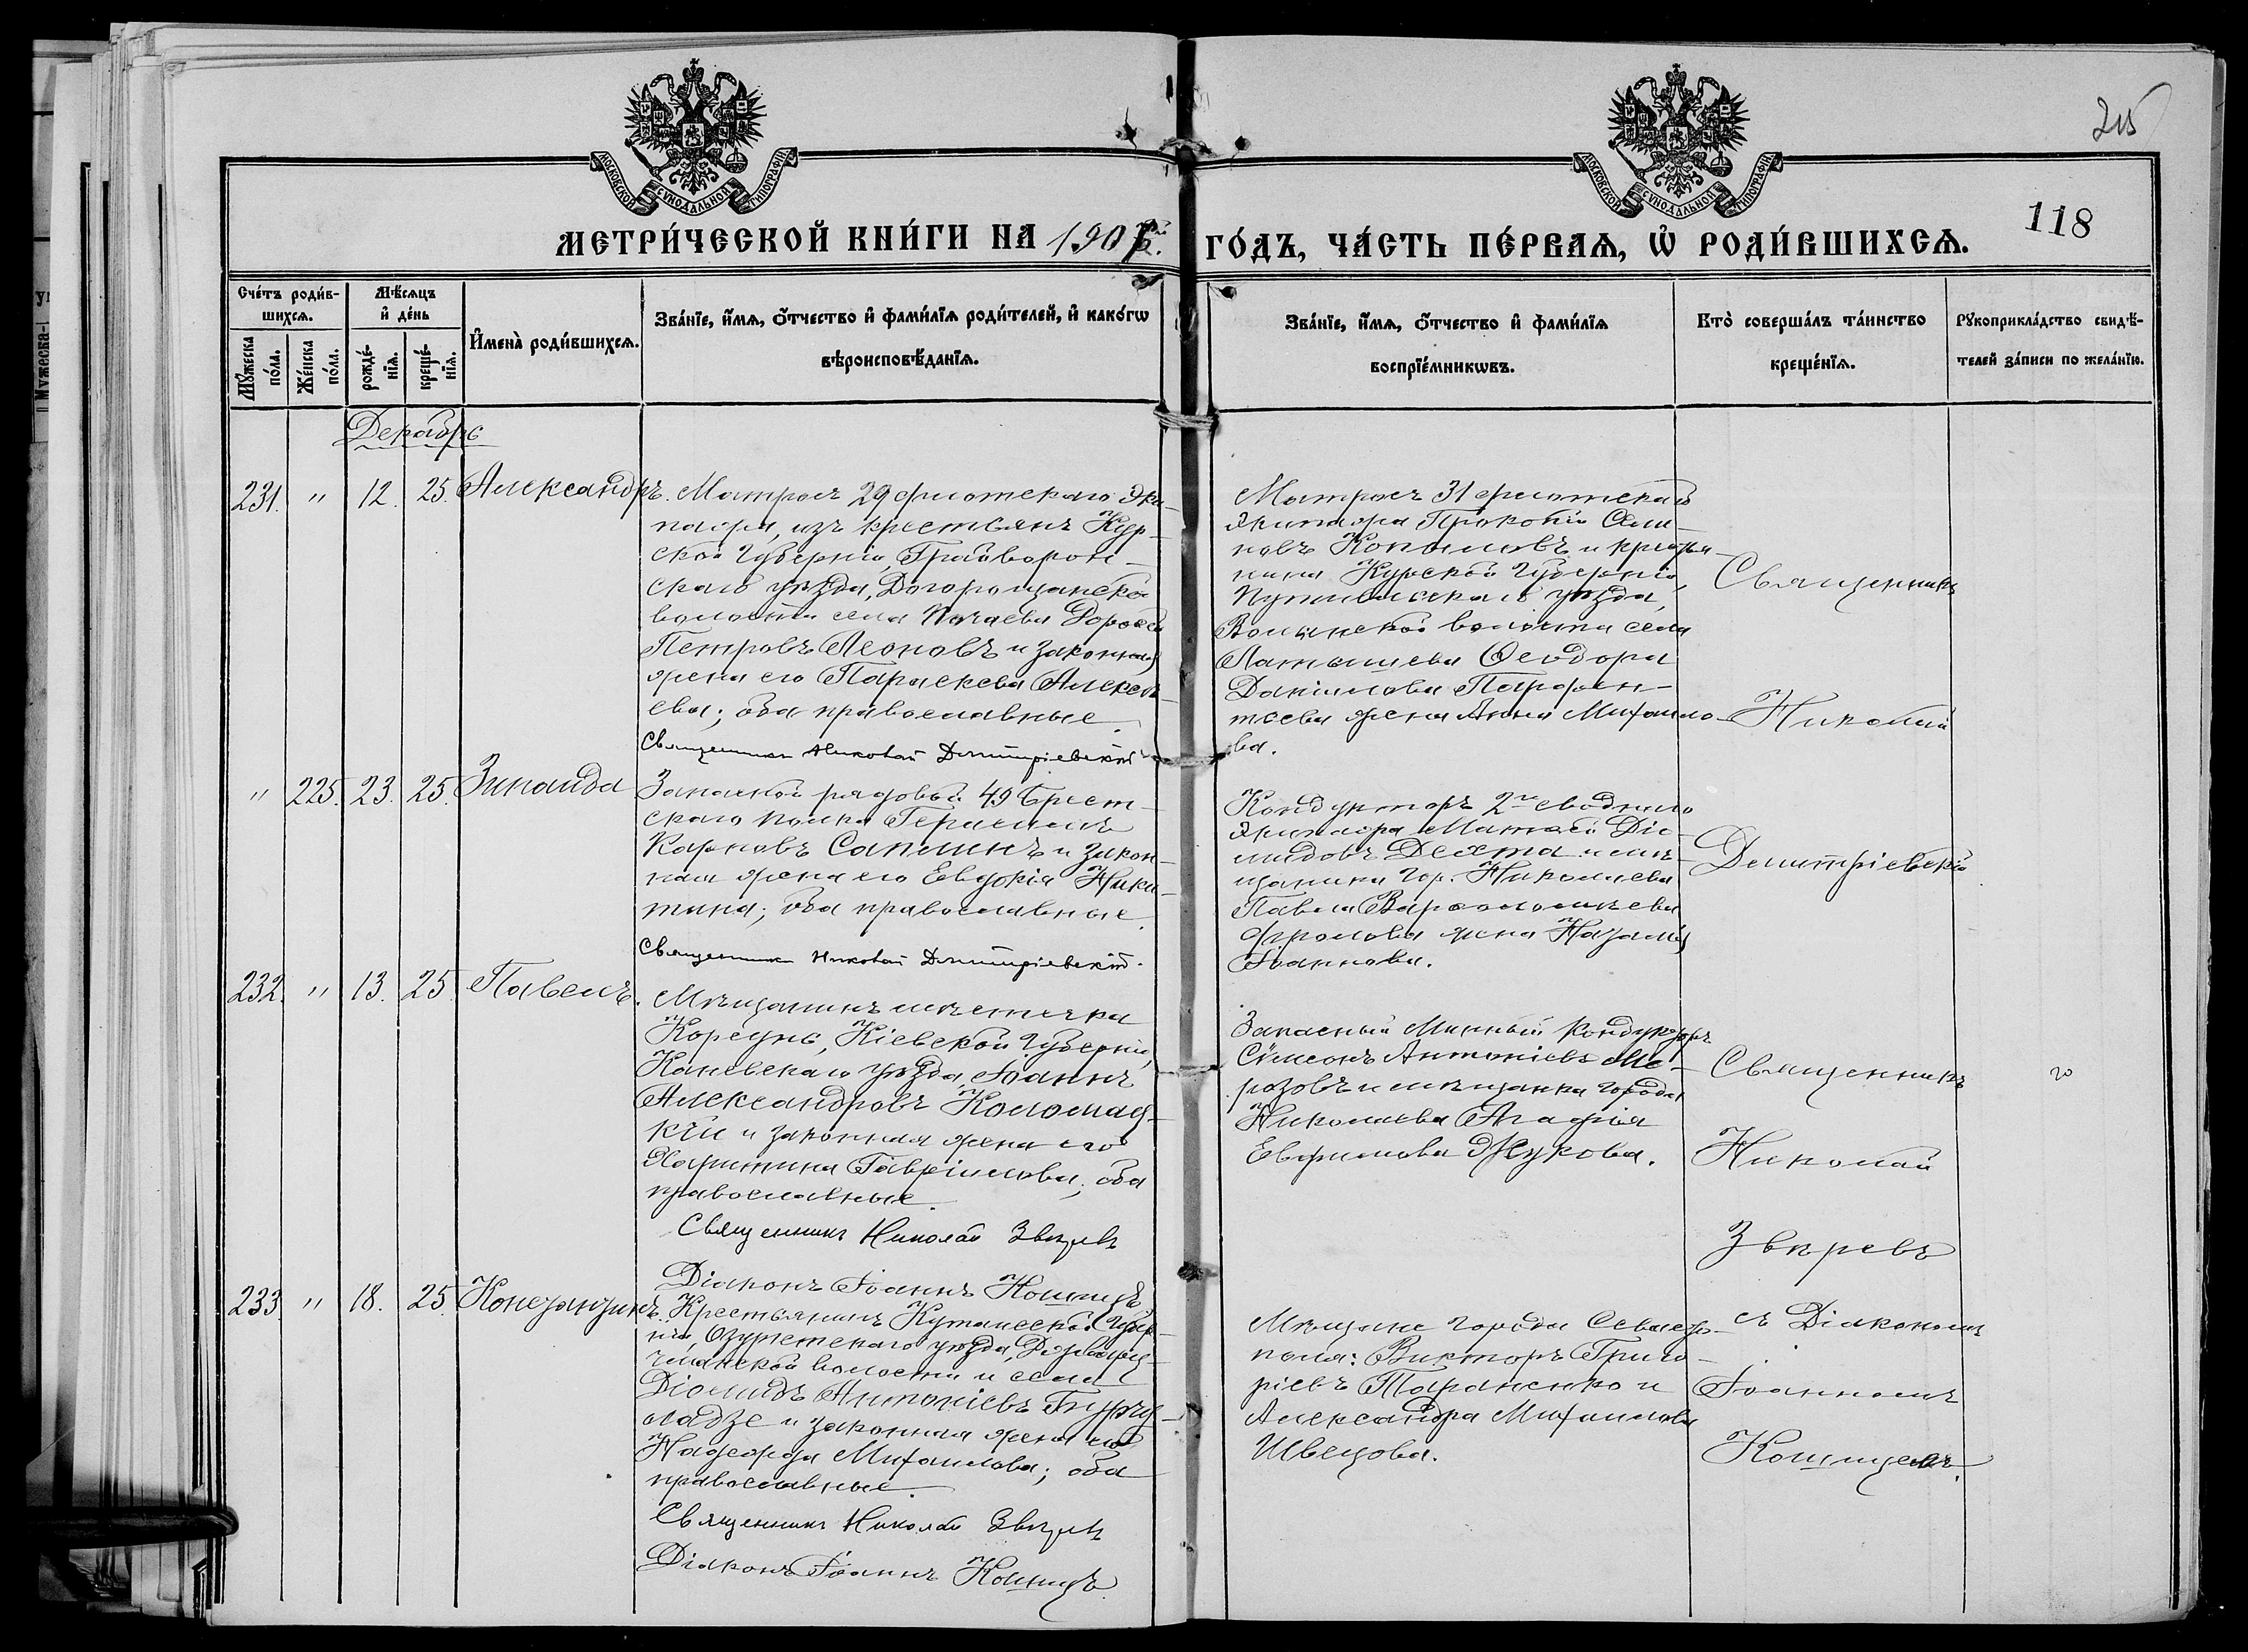 215
118
МОСКОВСКОЙ СѴНОДАЛЬНОЙ ТИПОГРАФІИ
МОСКОВСКОЙ СѴНОДАЛЬНОЙ ТИПОГРАФІИ
МЕТРИ́ЧЕСКОЙ КНИ́ГИ НА 190
ГО́ДЪ, ЧА́СТЬ ПЕ́РВАѦ, Ѡ҆ РОДИ́ВШИХСѦ.
Сче́тъ роди́в-
шихсѧ.
Мꙋ́жеска
по́ла.
Же́нска
по́ла.
Мѣ́сѧцъ
и҆ де́нь
рожде́-
нїѧ.
креще́-
нїѧ.
И҆мена̀ роди́вшихсѧ.
Зва́нїе, и҆́мѧ, ѻ҆́тчество и҆ фами́лїѧ роди́телей, и҆ како́гѡ
вѣроисповѣ́данїѧ.
Зва́нїе, и҆́мѧ, ѻ҆́тчество и҆ фами́лїѧ
воспрїе́мникѡвъ.
Кто̀ соверша́лъ та́инство
креще́нїѧ.
Рꙋкоприкла́дство свидѣ́-
телей за́писи по жела́нїю.
Декабрь
231. " 12. 25. Александръ.
Матросъ 29 флотскаго Эки-
пажа, изъ крестьянъ Кур-
ской Губерніи, Грайворон-
скаго уѣзда,
волости села Почаева Дороѳей
Петровъ Леоновъ и законная
жена его Параскева Алексѣ-
ева; оба православные.
Священникъ Николай Димитріевскій
Матросъ 31 флотскаго
Экипажа Прокопій Семе-
новъ и крестья-
нина Курской Губерніи,
Путивльскаго уѣзда,
волости села
Ѳеодора
Даніилова Парфен-
тьева жена Анна Михаило-
ва.
Священникъ
Николай
Димитріевскій
" 225. 23. 25. Зинаида
Запасной рядовой 49 Брест-
скаго полка Герасимъ
Карповъ и закон-
ная жена его Евдокія Ники-
тина; оба православные.
Священникъ Николай Димитріевскій.
Кондукторъ 2го своднаго
Экипажа Матѳей Діо-
мидовъ Дехта и мѣ-
щанина гор. Николаева
Павла Варѳоломеева
Фролова жена Наталія
Іоаннова.
232. " 13. 25. Павелъ.
Мѣщанинъ мѣстечка
Корсунь, Кіевской Губерніи,
Каневскаго уѣзда, Іоаннъ
Александровъ Коломац-
кій и законная жена его
Харитина Гавріилова; оба
православные.
Священникъ Николай Звѣревъ
Діаконъ Іоаннъ Кошицъ
Запасный Минный Кондукторъ
Сѵмеонъ Антоніевъ Мо-
розовъ и мѣщанка города
Николаева Агафія
Евфимова Жукова.
Священникъ
Николай
Звѣревъ
съ Діакономъ
Іоанномъ
Кошицемъ.
233. " 18. 25. Константинъ.
Крестьянинъ Кутаисской Губер-
ніи, Озургетскаго уѣзда,
волости и села
Діомидъ Антоніевъ Гурчу-
ладзе и законная жена его
Надежда Михаилова; оба
православные.
Священникъ Николай Звѣревъ
Діаконъ Іоаннъ Кошицъ.
Мѣщане города Севасто-
поля: Викторъ Григо-
ріевъ Тараненко и
Александра Михаилова
Швецова.